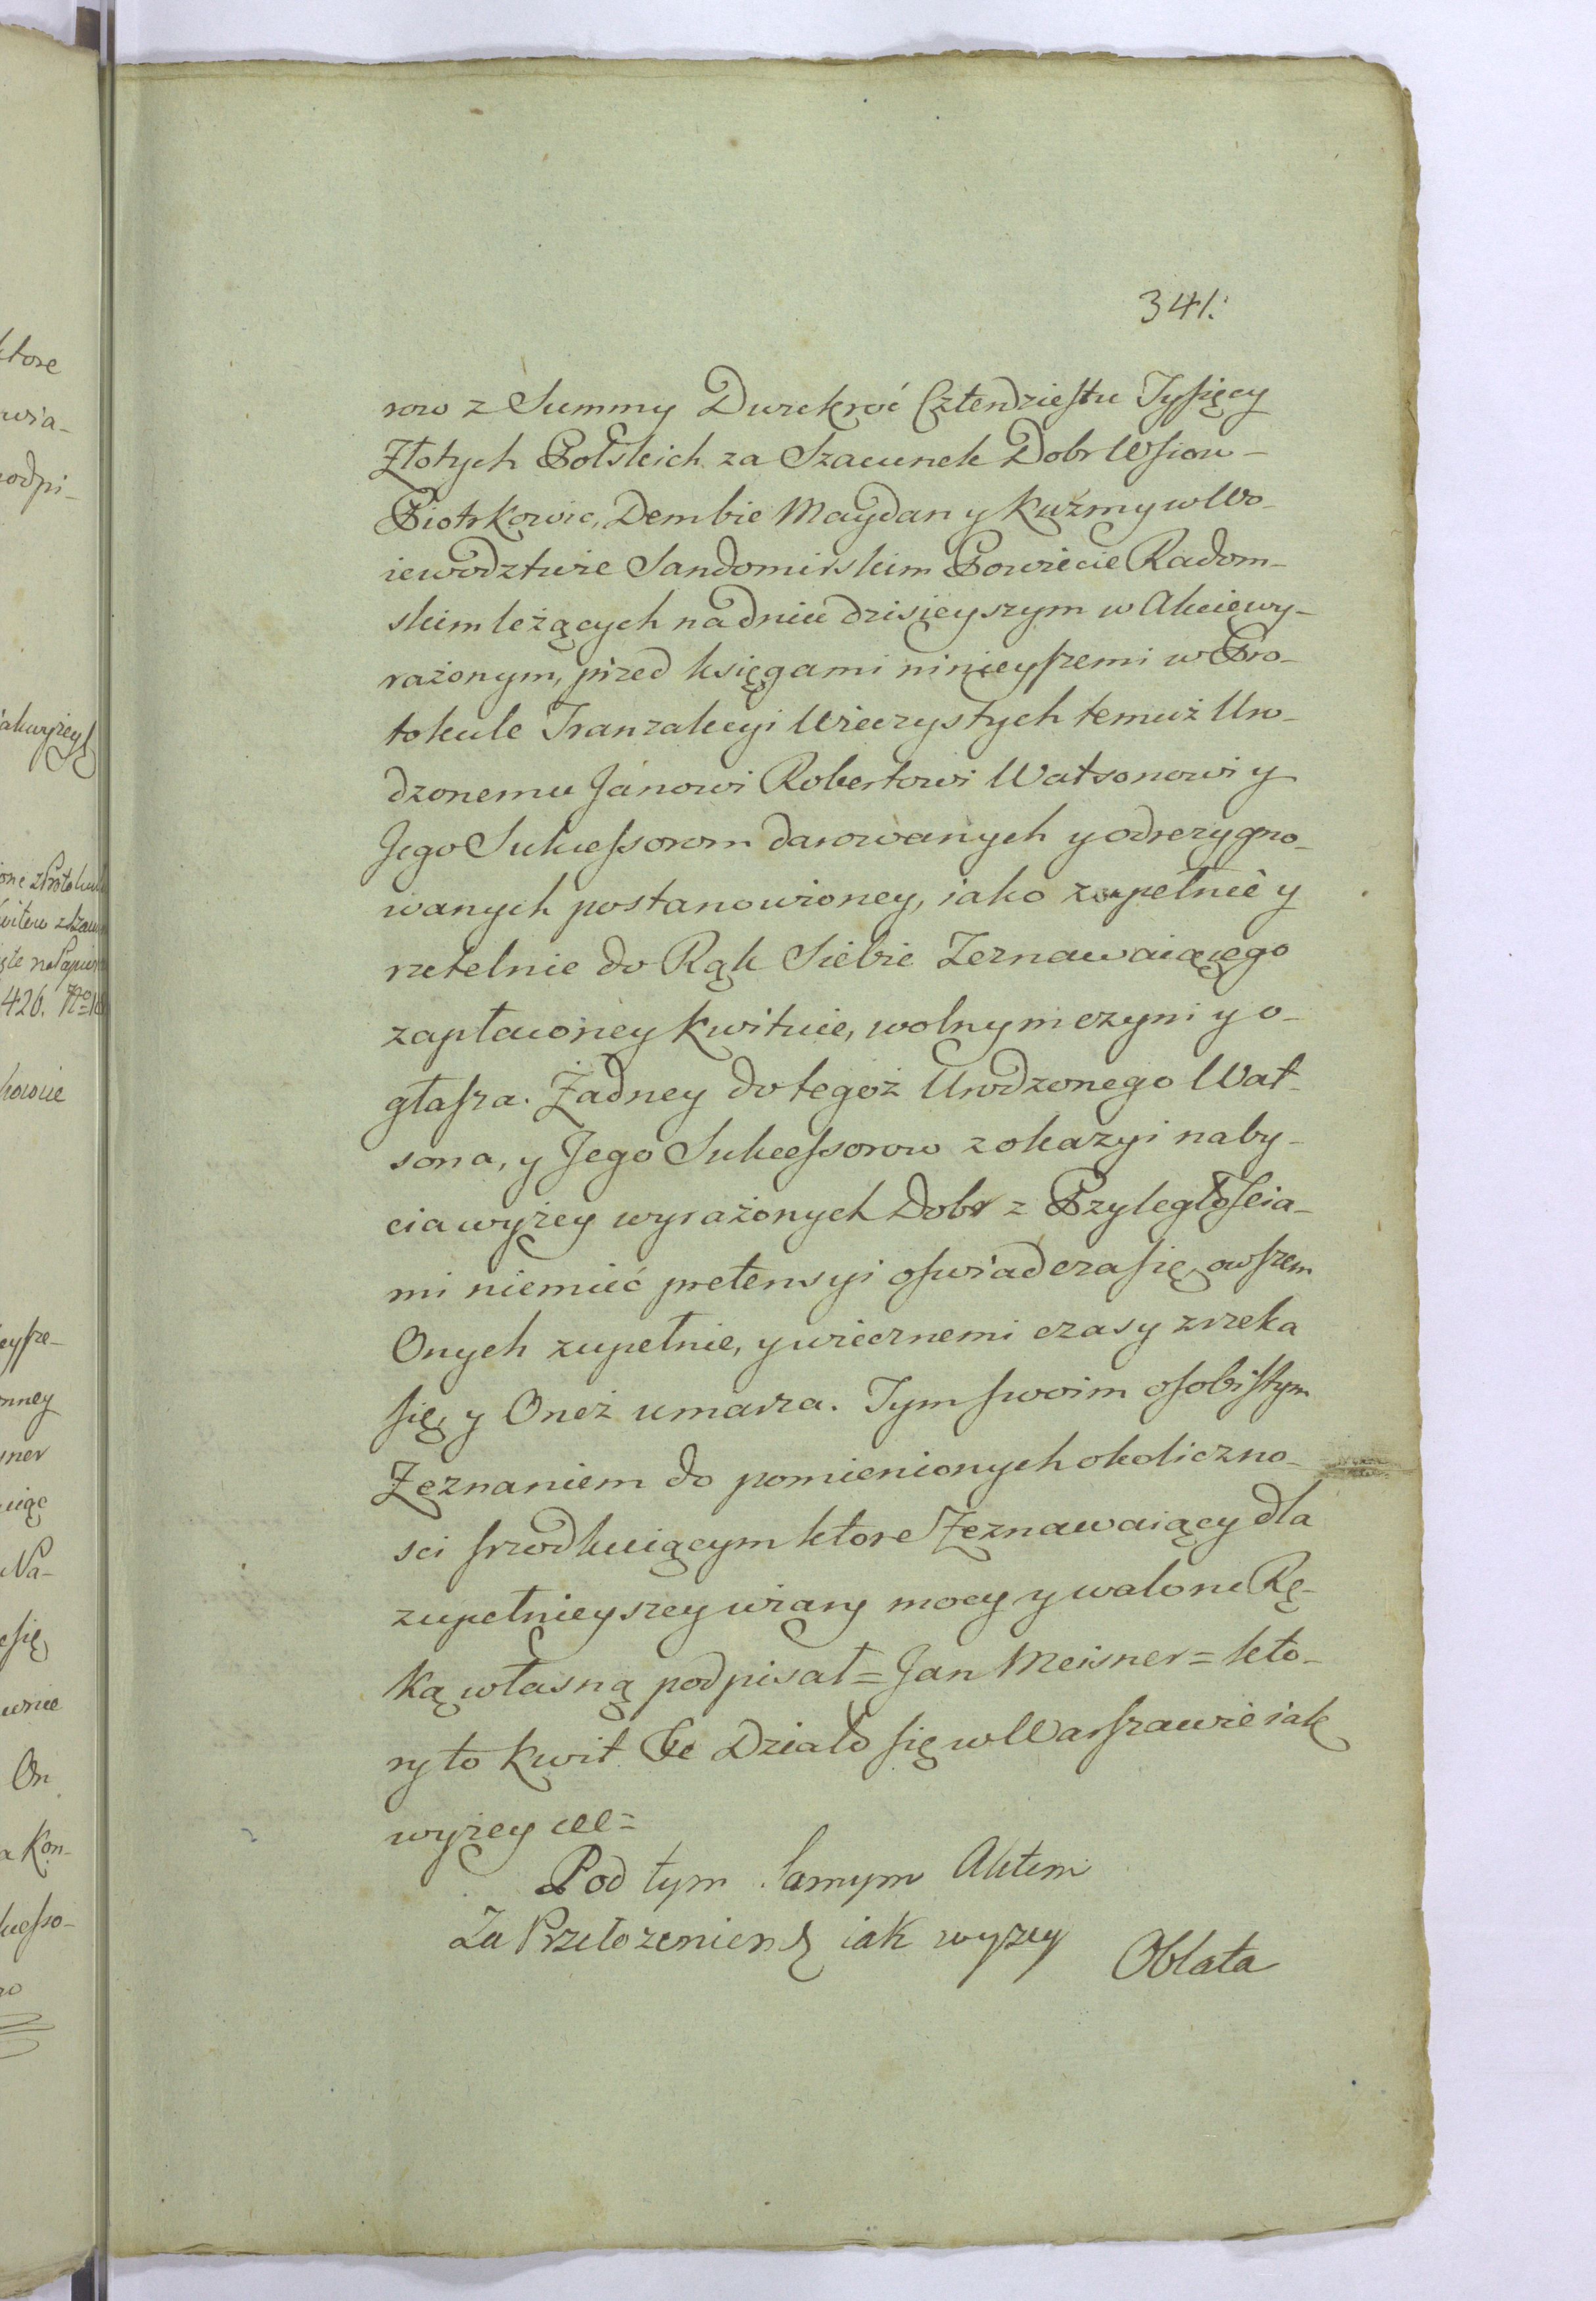 341.
row z Summy Dwiekroć Cztendziestu Tysięcy
Złotych Polskich za Szacunek Dobr Wsiow
Piotrkowic, Dembie Maydan y Kuźmy w Wo-
iewodztwie Sandomirskim Powiecie Radom-
skim leżących na dniu dzisieyszym w Akcie wy-
rażonym, przed księgami ninieyszemi w Pro-
tokule Tranzakcyi Wieczystych temuż Uro-
dzonemu Janowi Robertowi Watsonowi y
Jego Sukcessorom darowanych y odrezygno-
wanych postanowioney, iako zupełnie y
rzetelnie do Rąk Siebie Zeznawaiącego
zapłaconey kwituie, wolnym czyni y o-
głasza. Żadney do tegoż Urodzonego Wat-
sona, y Jego Sukcessorow z okazyi naby-
cia wyżey wyrażonych Dobr z Przyległościa-
mi niemieć pretensyi oswiadcza się, owszem
Onych zupełnie, y wiecznemi czasy zrzeka
się, y Oneż umarza. Tym swoim osobistym
Zeznaniem do pomienionych okoliczno-
sci srzodkuiącym ktore Zeznawaiący dla
zupełnieyszey wiary mocy y waloru Rę-
ką własną podpisał = Jan Meisner = kto-
ry to kwit &c Działo się w Warszawie iak
wyżey
Pod tym Samym Aktem
Za Przełożeniem iak wyzey
Oblata
ktore
wia-
podpi-
426.
eysze-
nney
sner
Na-
się
wnie
On
a Kon-
kcesso-